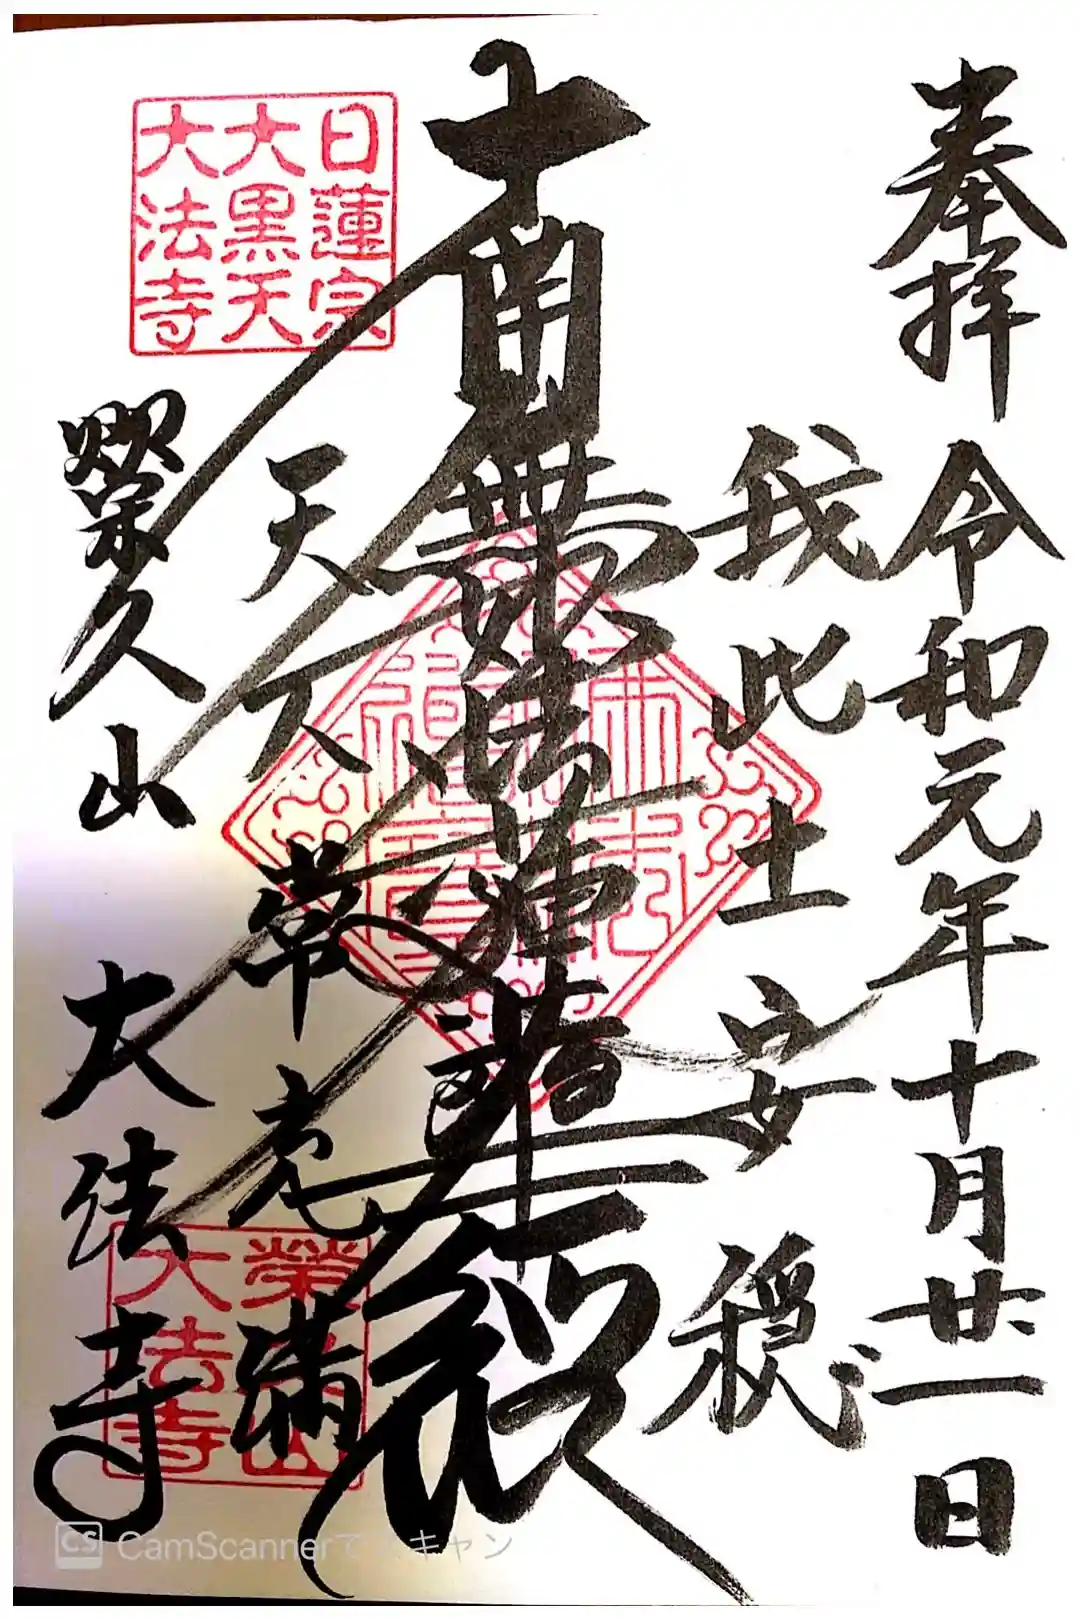 奉拝 令和元年十月廿一日
我此土安穏
南無妙法蓮華経
天人常充満
榮久山 大法寺
日蓮宗
大黒天
大法寺
CS CamScannerでスキャン